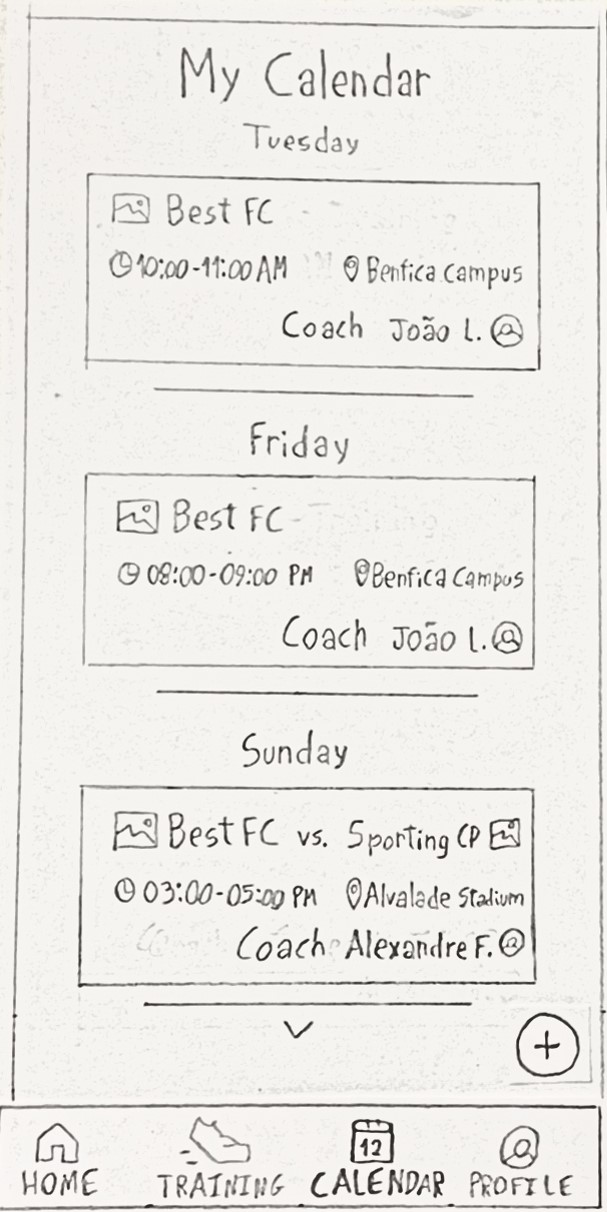 My Calendar
Tuesday
Best FC
10:00-11:00 AM Benfica Campus
Coach João L.
Friday
Best FC
08:00-09:00 PM Benfica Campus
Coach João L.
Sunday
Best FC vs. Sporting CP
03:00-05:00 PM Alvalade Stadium
Coach Alexandre F.
12
HOME TRAINING CALENDAR PROFILE